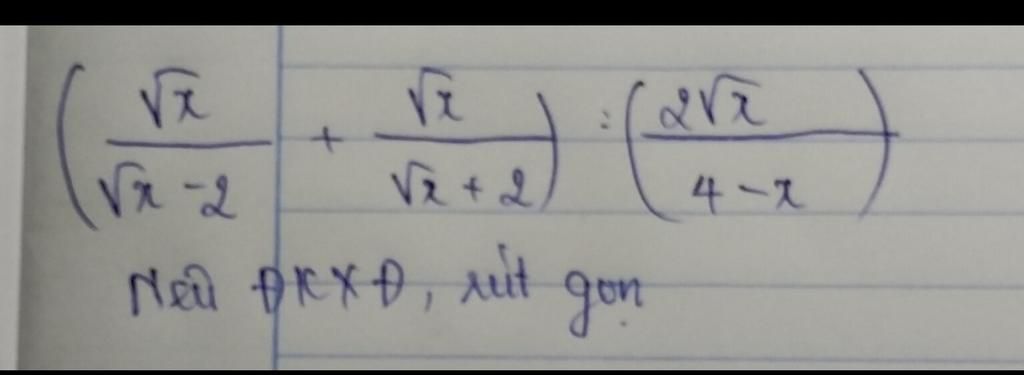 (√x / (√x - 2) + √x / (√x + 2)) : (2√x / (4 - x))
Nêu ĐKXĐ, rút gọn